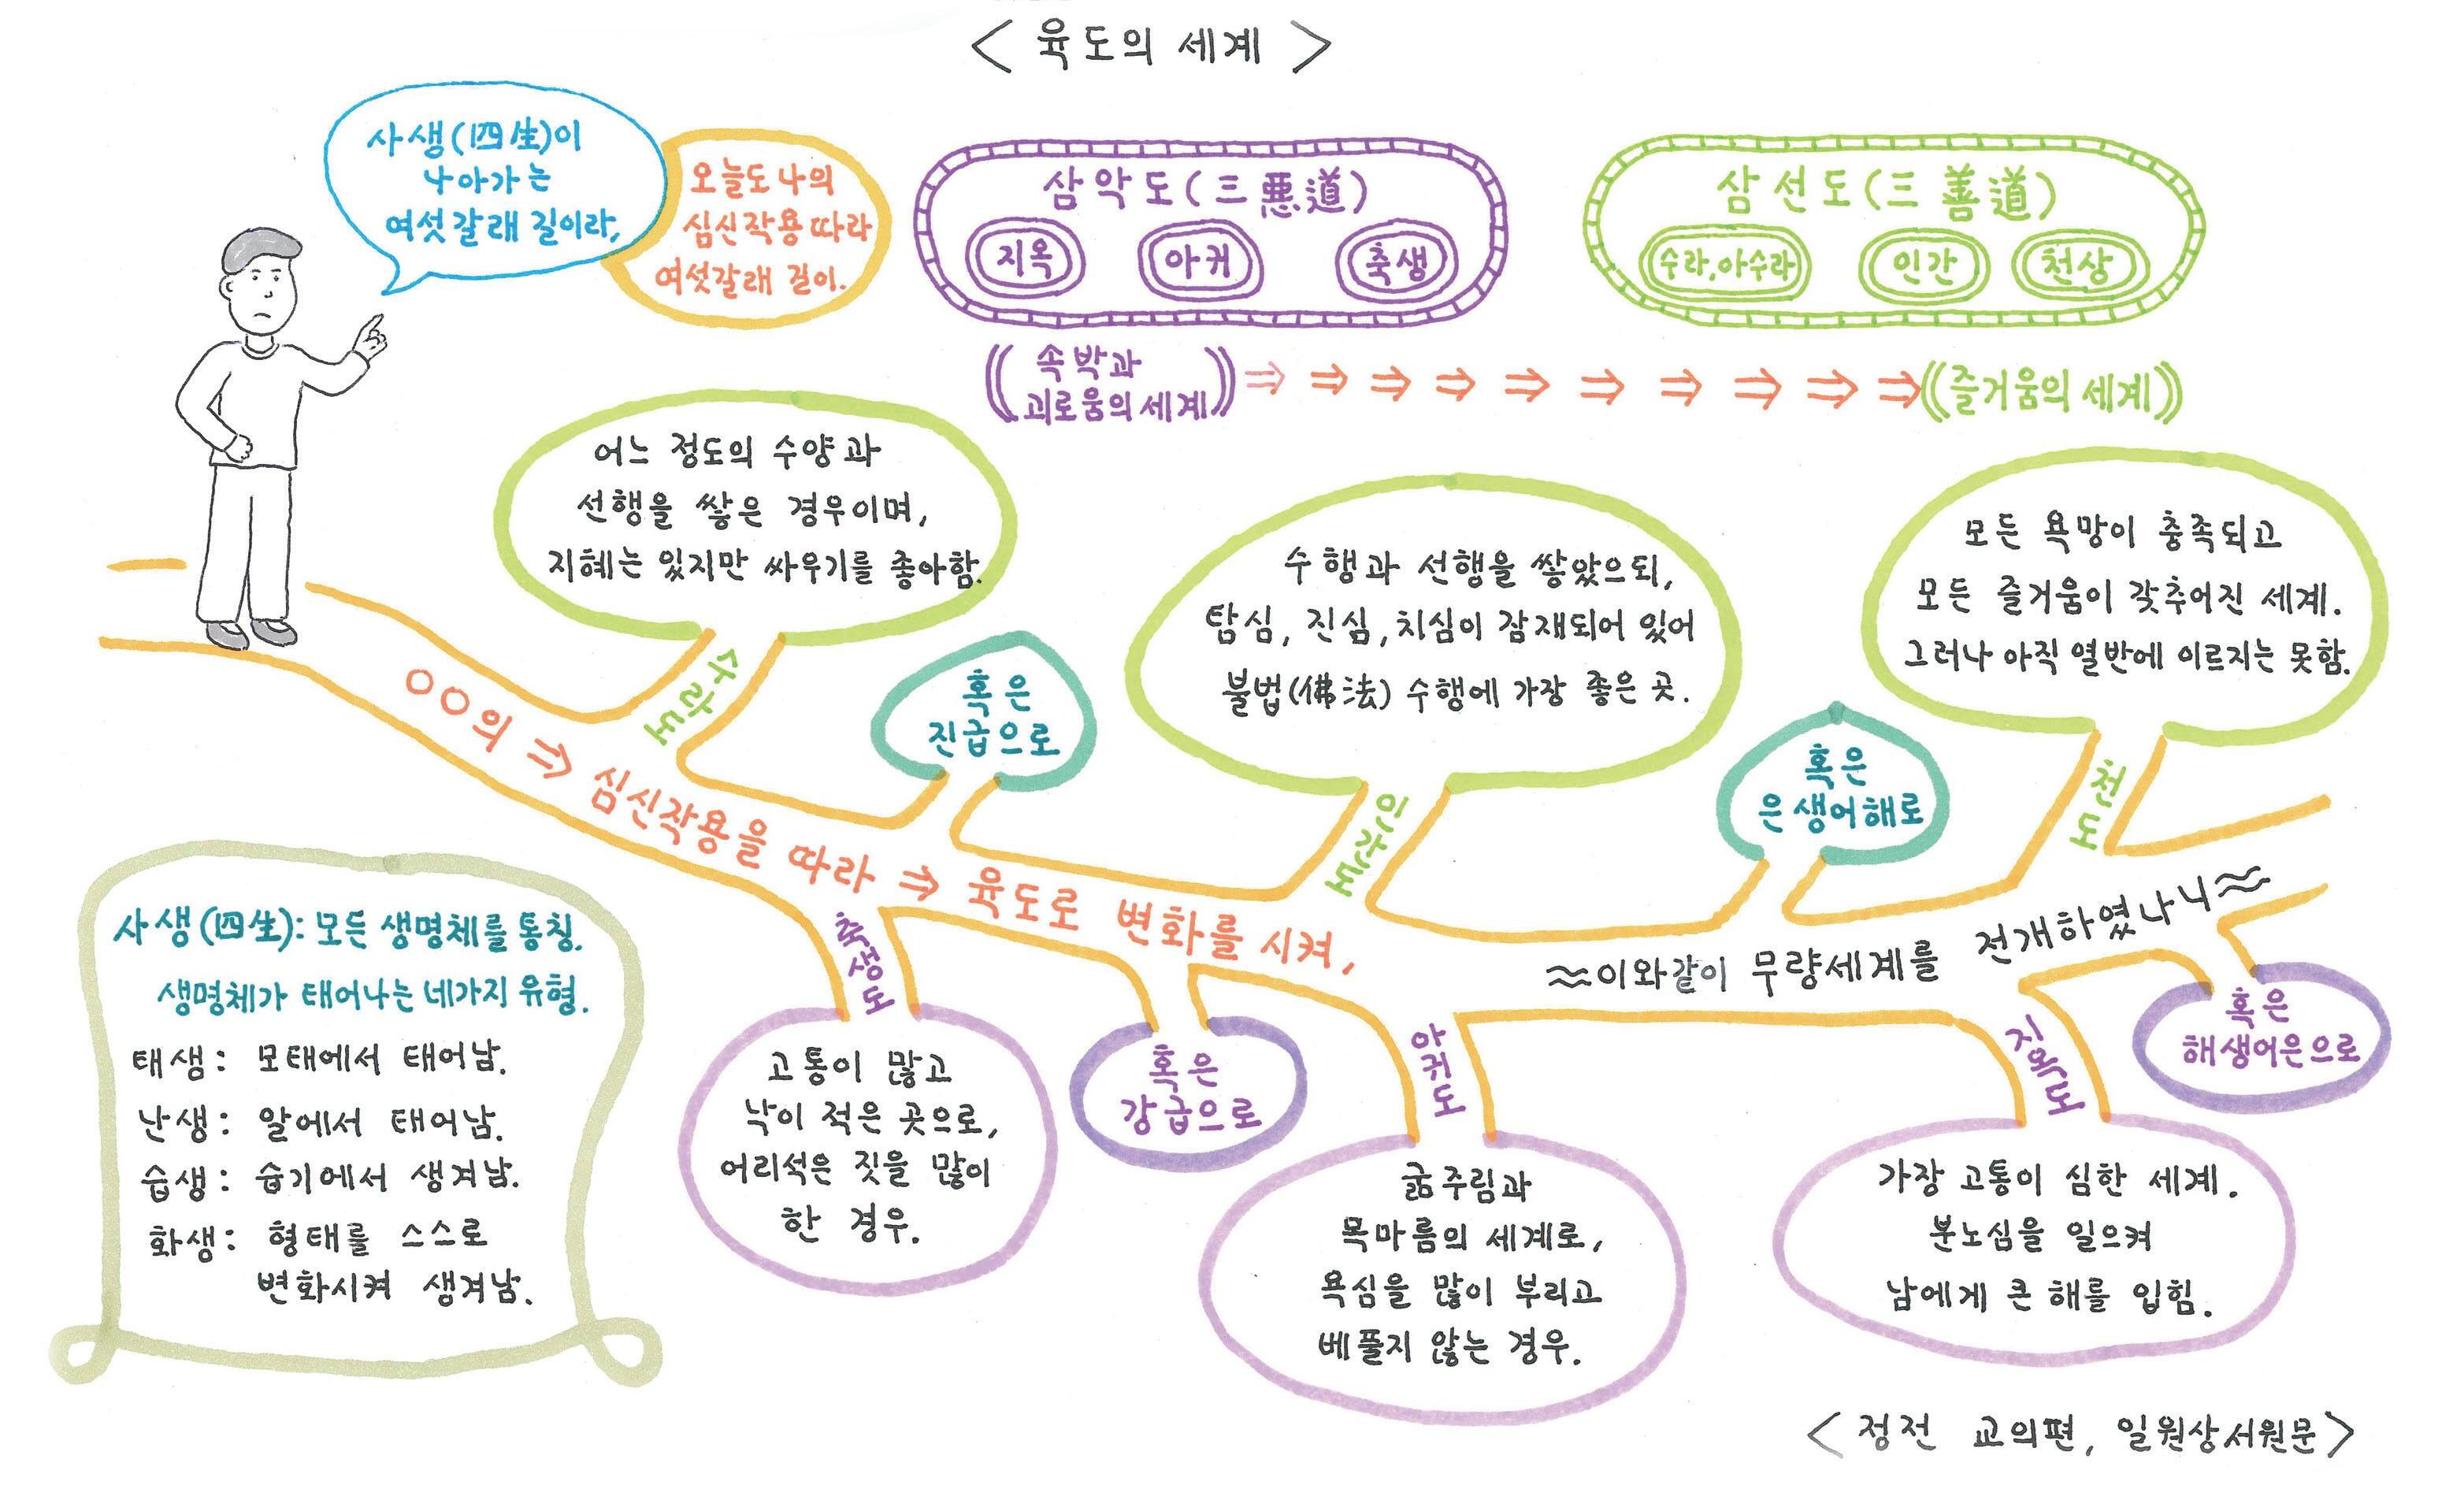 < 육도의 세계 >
사생(四生)이
나아가는
여섯 갈래 길이라,
오늘도 나의
심신작용 따라
여섯갈래 길이.
삼악도(三惡道)
지옥
아귀
축생
삼선도(三善道)
수라,아수라
인간
천상
속박과
괴로움의 세계
⇒ ⇒ ⇒ ⇒ ⇒ ⇒ ⇒ ⇒ ⇒ ⇒
즐거움의 세계
어느 정도의 수양과
선행을 쌓은 경우이며,
지혜는 있지만 싸우기를 좋아함.
수라도
혹은
진급으로
수행과 선행을 쌓았으되,
탐심, 진심, 치심이 잠재되어 있어
불법(佛法) 수행에 가장 좋은 곳.
인간도
혹은
은생어해로
모든 욕망이 충족되고
모든 즐거움이 갖추어진 세계.
그러나 아직 열반에 이르지는 못함.
천도
○○의 ⇒ 심신작용을 따라 ⇒ 육도로 변화를 시켜,
≈이와같이 무량세계를 전개하였나니≈
사생(四生): 모든 생명체를 통칭.
생명체가 태어나는 네가지 유형.
태생: 모태에서 태어남.
난생: 알에서 태어남.
습생: 습기에서 생겨남.
화생: 형태를 스스로
변화시켜 생겨남.
축생도
고통이 많고
낙이 적은 곳으로,
어리석은 짓을 많이
한 경우.
혹은
강급으로
아귀도
굶주림과
목마름의 세계로,
욕심을 많이 부리고
베풀지 않는 경우.
지옥도
가장 고통이 심한 세계.
분노심을 일으켜
남에게 큰 해를 입힘.
혹은
해생어은으로
<정전 교의편, 일원상서원문>